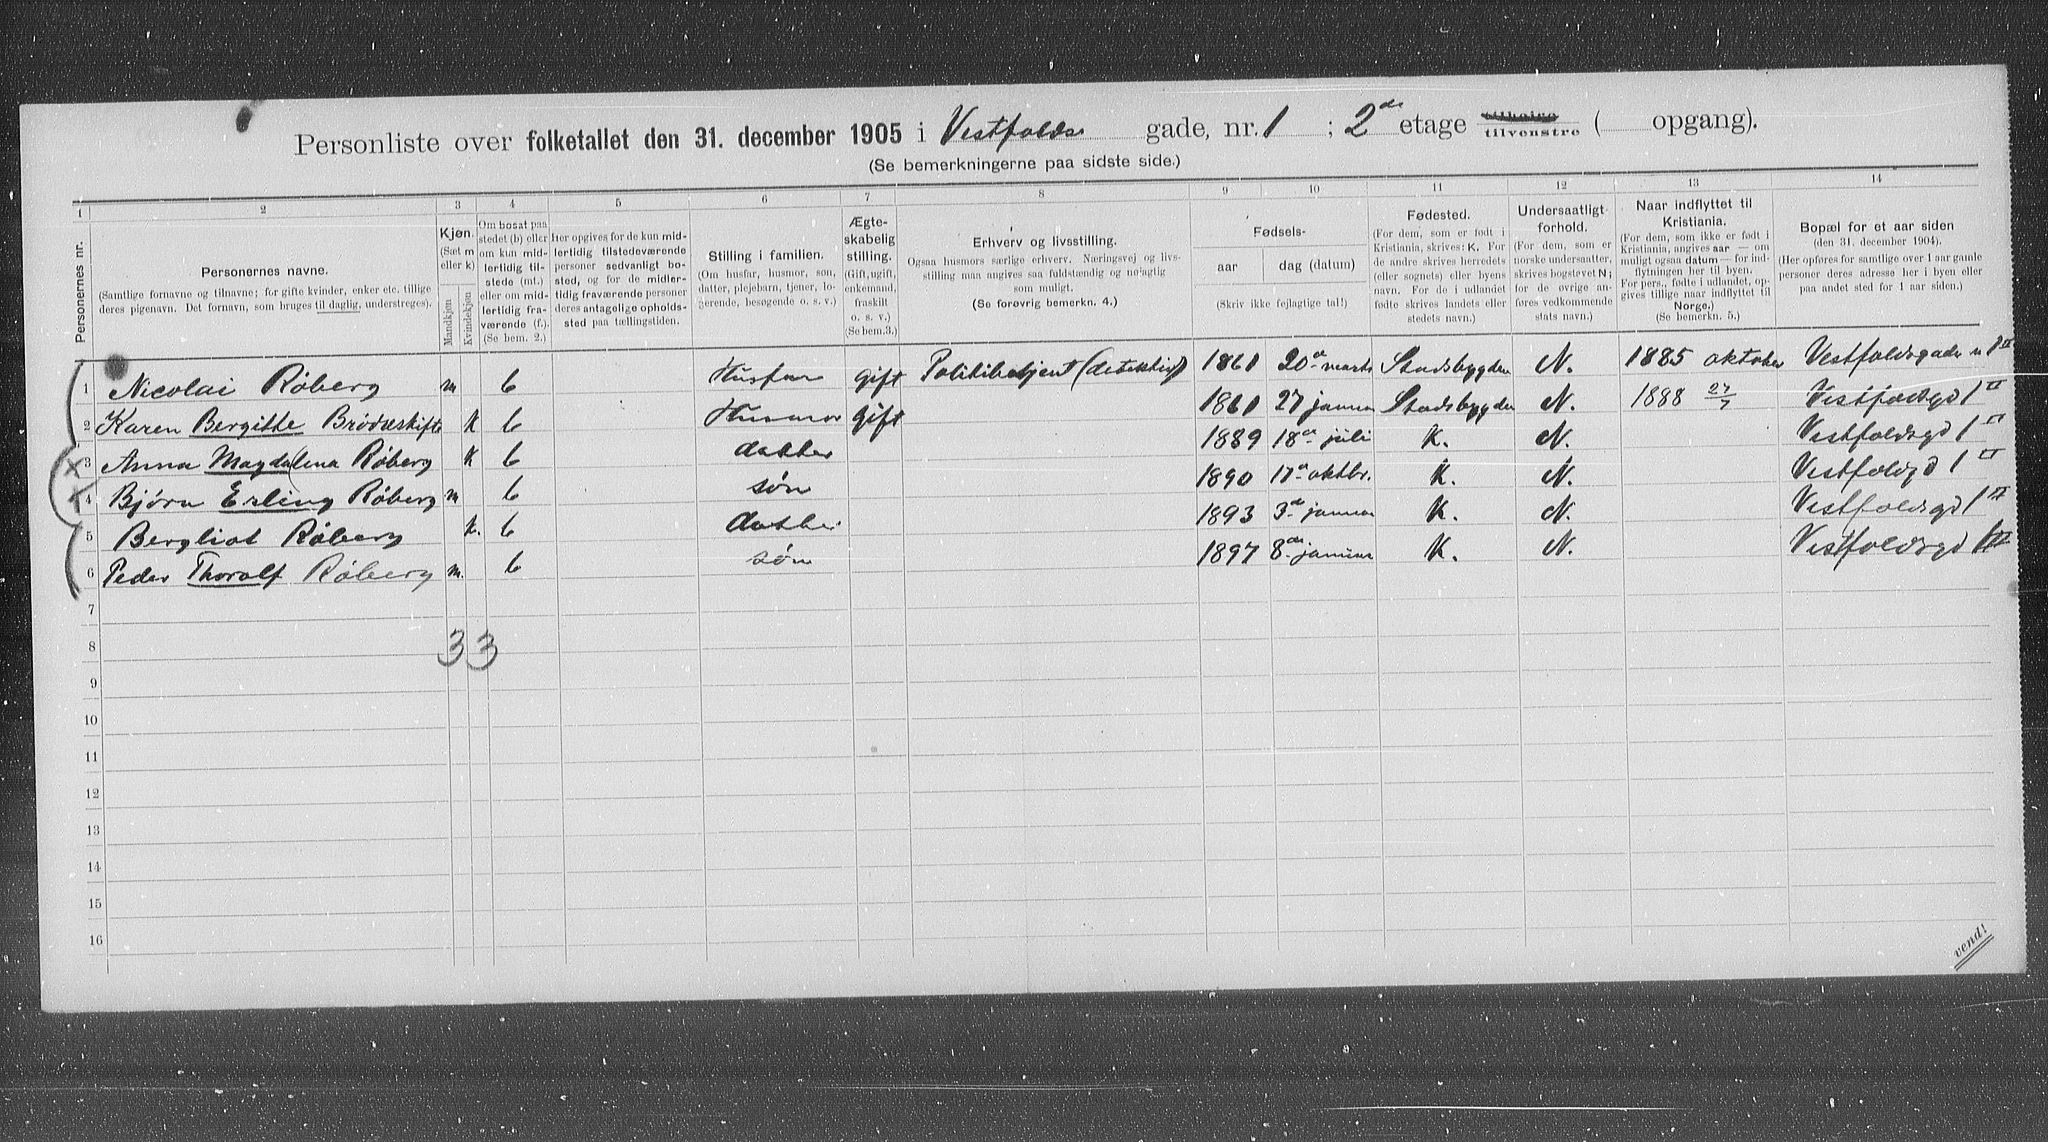 Personliste over folketallet den 31. december 1905 i Vestfolds gade, nr. 1 ; 2de etage tilhøire tilvenstre ( opgang).
(Se bemerkningerne paa sidste side.)
1 2 3 4 5 6 7 8 9 10 11 12 13 14
Personernes nr.
Personernes navne.
(Samtlige fornavne og tilnavne; for gifte kvinder, enker etc. tillige
deres pigenavn. Det fornavn, som bruges til daglig, understreges).
Kjøn.
(Sæt m
eller k)
Mandkjøn
Kvindekjøn
Om bosat paa
stedet (b) eller
om kun mid-
lertidig til-
stede (mt.)
eller om mid-
lertidig fra-
værende (f.).
(Se bem. 2.)
Her opgives for de kun mid-
lertidig tilstedeværende
personer sedvanligt bo-
sted, og for de midler-
tidig fraværende personer
deres antagelige opholds-
sted paa tællingstiden.
Stilling i familien.
(Om husfar, husmor, søn,
datter, plejebarn, tjener, lo-
gerende, besøgende o. s. v.)
Ægte-
skabelig
stilling.
(Gift, ugift,
enkemand,
fraskilt
o. s. v.)
(Se bem. 3.)
Erhverv og livsstilling.
Ogsaa husmors særlige erhverv. Næringsvej og livs-
stilling maa angives saa fuldstændig og nøiagtig
som muligt.
(Se forøvrig bemerkn. 4.)
Fødsels-
aar
dag (datum)
(Skriv ikke fejlagtige tal!)
Fødested.
(For dem, som er født i
Kristiania, skrives: K. For
de andre skrives herredets
(eller sognets) eller byens
navn. For de i udlandet
fødte skrives landets eller
stedets navn.)
Undersaatligt
forhold.
(For dem, som er
norske undersaatter,
skrives bogstevet N;
for de øvrige an-
føres vedkommende
stats navn.)
Naar indflyttet til
Kristiania.
(For dem, som ikke er født i
Kristiania, angives aar — om
muligt ogsaa datum — for ind-
flytningen her til byen.
For pers., fødte i udlandet, op-
gives tillige naar indflyttet til
Norge.)
(Se bemerkn. 5.)
Bopæl for et aar siden
(den 31. december 1904).
(Her opføres for samtlige over 1 aar gamle
personer deres adresse her i byen eller
paa andet sted for 1 aar siden.)
1 Nicolai Røberg m b Husfar gift Politibetjent (detektiv) 1861 20de marts Stadsbygden N. 1885 oktober Vestfoldsgade n 1 II
2 Karen Bergitte Brødreskift k b Husmor gift 1861 27 januar Stadsbygden N. 1888 27/7 Vestfoldgd 1 II
3 Anna Magdalena Røberg k b datter 1889 18de juli K. N. Vestfoldsgd 1 II
4 Bjørn Erling Røberg m b søn 1890 17de oktbr. K. N. Vestfoldgd 1 II
5 Bergliot Røberg k. b datter 1893 3de januar K. N. Vestfoldsgd 1 II
6 Peder Thoralf Røberg m. b søn 1897 8de januar K. N. Vestfoldsgd 1 II
7
8 3 3
9
10
11
12
13
14
15
16
vend!